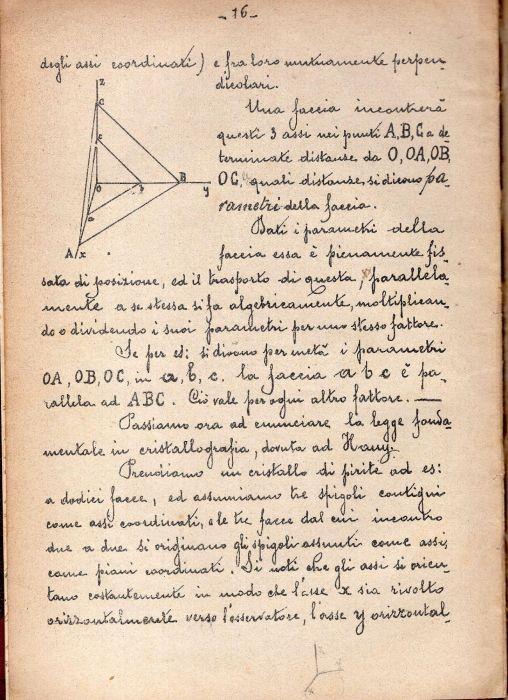 - 16 -
degli assi coordinati) e fra loro mutuamente perpen-
dicolari.
Una faccia incontrerà
questi 3 assi nei punti A, B, C a de
terminate distanze da O, OA, OB,
OC, quali distanze, si dicono pa-
rametri della faccia.
Dati i parametri della
faccia essa è pienamente fis
sata di posizione, ed il trasporto di questa, parallela-
mente a se stessa si fa algebricamente, moltiplican-
do o dividendo i suoi parametri per uno stesso fattore.
Se per es: si divono per metà i parametri
OA, OB, OC, in a, b, c. la faccia a b c è pa-
rallela ad ABC. Ciò vale per ogni altro fattore. —
Passiamo ora ad enunciare la legge fonda-
mentale in cristallografia, dovuta ad Hauy.
Prendiamo un cristallo di pirite ad es:
a dodici facce, ed assumiamo tre spigoli contigui
come assi coordinati, e le tre facce dal cui incontro
due a due si originano gli spigoli assunti come assi,
come piani coordinati. Si noti che gli assi si orien-
tano costantemente in modo che l'asse x sia rivolto
orizzontalmente verso l'osservatore, l'asse y orizzontal-
z
C
c
O
b
B
y
a
A
x